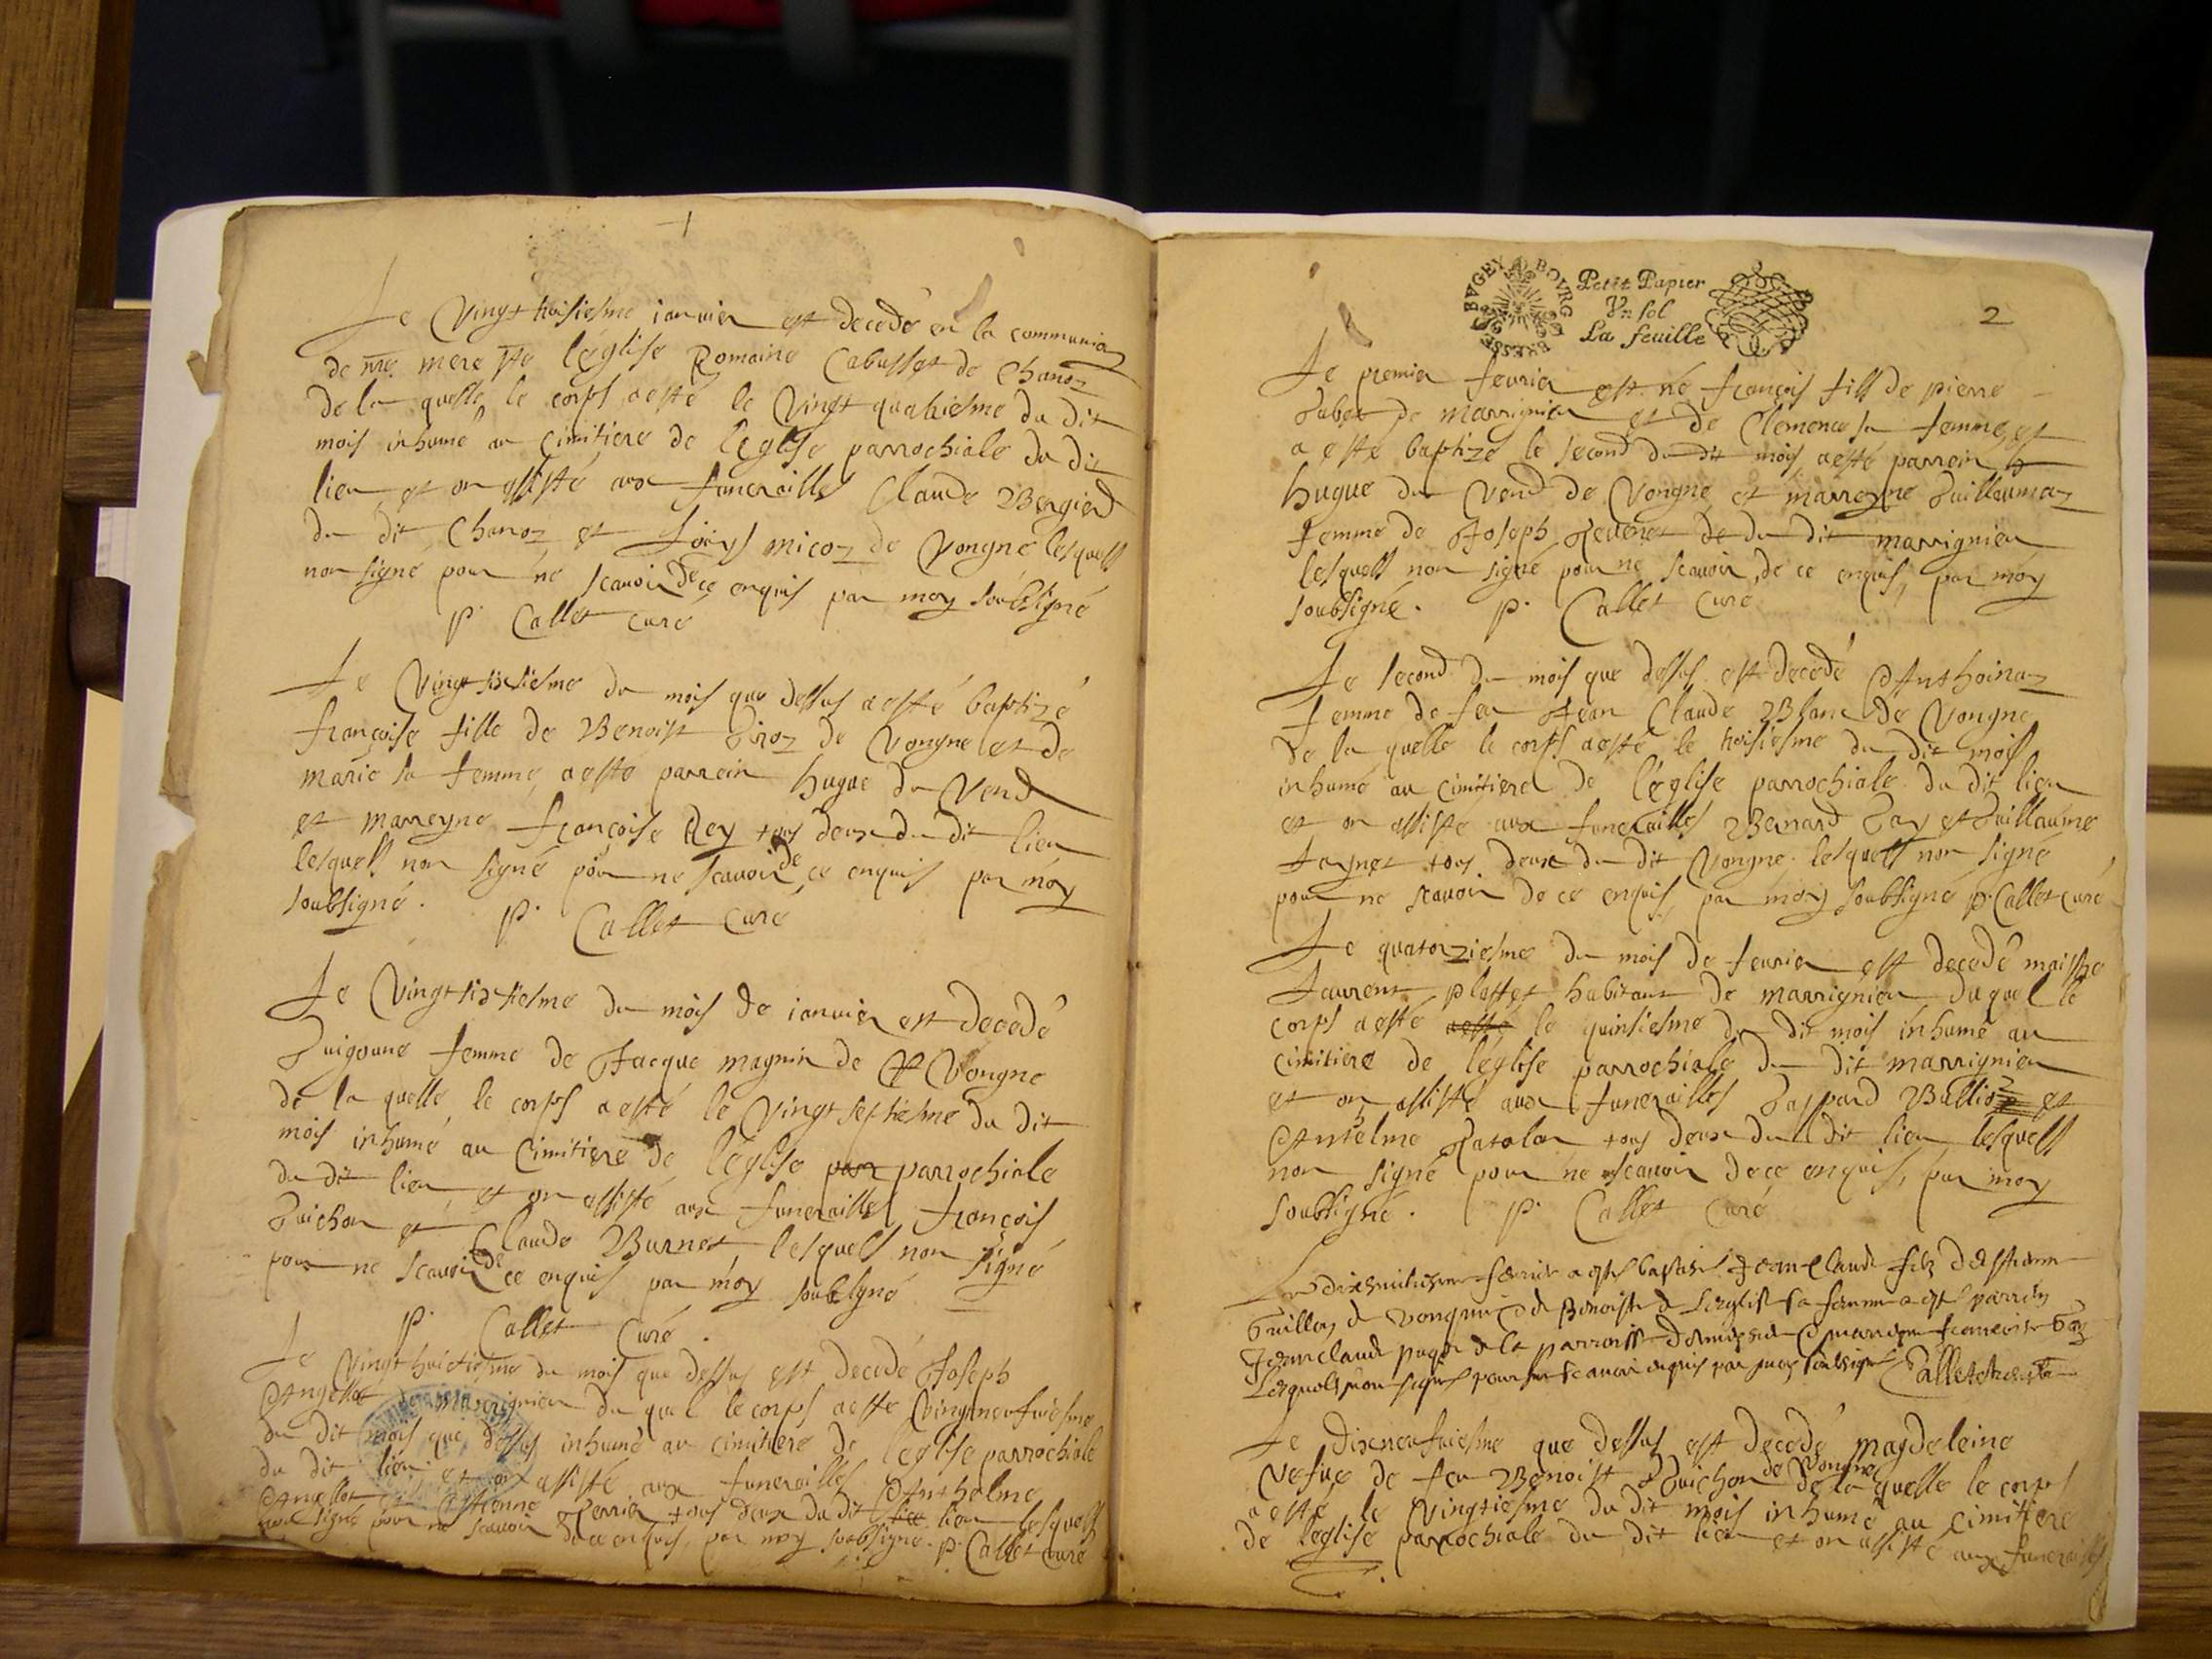 Le vingt troisiesme ianuier est decedé en la communion
de nre mere Ste l'église Romaine Cabusset de Chanoz
de la quelle le corps a esté le vingt quatriesme du dit
mois inhumé au cimitiere de l'église parrochiale du dit
lieu et on assisté aux funerailles Claude Bergier
du dit Chanoz et Loüys micoz de Vongne lesquels
non signé pour ne scauoir de ce enquis par moy soubsigné
p. Callet curé
Le vingt sixiesme du mois que dessus a esté baptizé
françoise fille de Benoist Giroz de Vongne et de
marie sa femme, a esté parrein hugue du Vend
et marreyne françoise Rey tous deux du dit lieu
lesquels non signé pour ne scauoir de ce enquis par moy
soubsigné. p. Callet Curé
Le vingt sixiesme du mois de ianuier est decedé
Guigoune femme de Jacque magnin de Vongne
de la quelle le corps a esté le vingt septiesme du dit
mois inhumé au Cimitiere de l'église par parrochiale
du dit lieu, et on assisté aux funerailles françois
Guichon et Claude Burnet, lesquels non signé
pour ne scauoir de ce enquis par moy soubsigné
p. Callet Curé.
Le vingt huictiesme du mois que dessus est decedé Joseph
Angellot de marrignieu du quel le corps a esté vingtneufuiesme
du dit mois que dessus inhumé au cimitiere de l'eglise parrochiale
du dit lieu et on assisté aux funerailles Anthelme
Angellot et Estienne Perrier tous deux du dit lieu lesquels
non signé pour ne scauoir de ce enquis, par moy soubsigné. p. Callet curé
BVGEY BOVRG
Petit Papier
Vn sol
La feuille
2
Le premier feurier est né françois fils de pierre
Gubet de marrignieu et de Clemence sa femme, et
a esté baptizé le second du dit mois, a esté parrein
hugue du Vend de Vongne et marreyne Guillaumaz
femme de Joseph Reuenet de du dit marrignieu
lesquels non signé pour ne scauoir, de ce enquis, par moy
soubsigné. p. Callet Curé
Le second du mois que dessus est decedé Anthoinaz
femme de feu Jean Claude Blanc de Vongne
de la quelle le corps a esté le troisiesme du dit mois
inhumé au cimitiere de l'église parrochiale du dit lieu
et on assisté aux funerailles Bernard Gay et Guillaume
tous deux du dit Vongne lesquels non signé
pour ne scauoir de ce enquis, par moy soubsigné p. Callet curé
Le quatorziesme du mois de feurier est decedé maistre
Laurent plattet habitant de marrignieu duquel le
corps a esté a esté le quinsiesme du dit mois inhumé au
cimitiere de l'église parrochiale du dit marrignieu
et on assisté aux funerailles Gaspard et
Anselme tous deux du dit lieu lesquels
non signé pour ne scauoir de ce enquis, par moy
soubsigné. p. Callet Curé
Le dixhuitiesme feurier a esté baptisé Jean Claude fils d'Estienne
Guillon de vongne et de Benoiste de Leglise sa femme a esté parrein
Jean Claude de la parroisse et marreine francoise
Lesquels non signé pour ne scauoir enquis par moy soubsigné Callet
Le dixneufuiesme que dessus est decedé magdeleine
vefue de feu Benoist Guichon de Vongne de la quelle le corps
a esté le vingtiesme du dit mois inhumé au cimitiere
de l'église parrochiale du dit lieu et on assisté aux funerailles